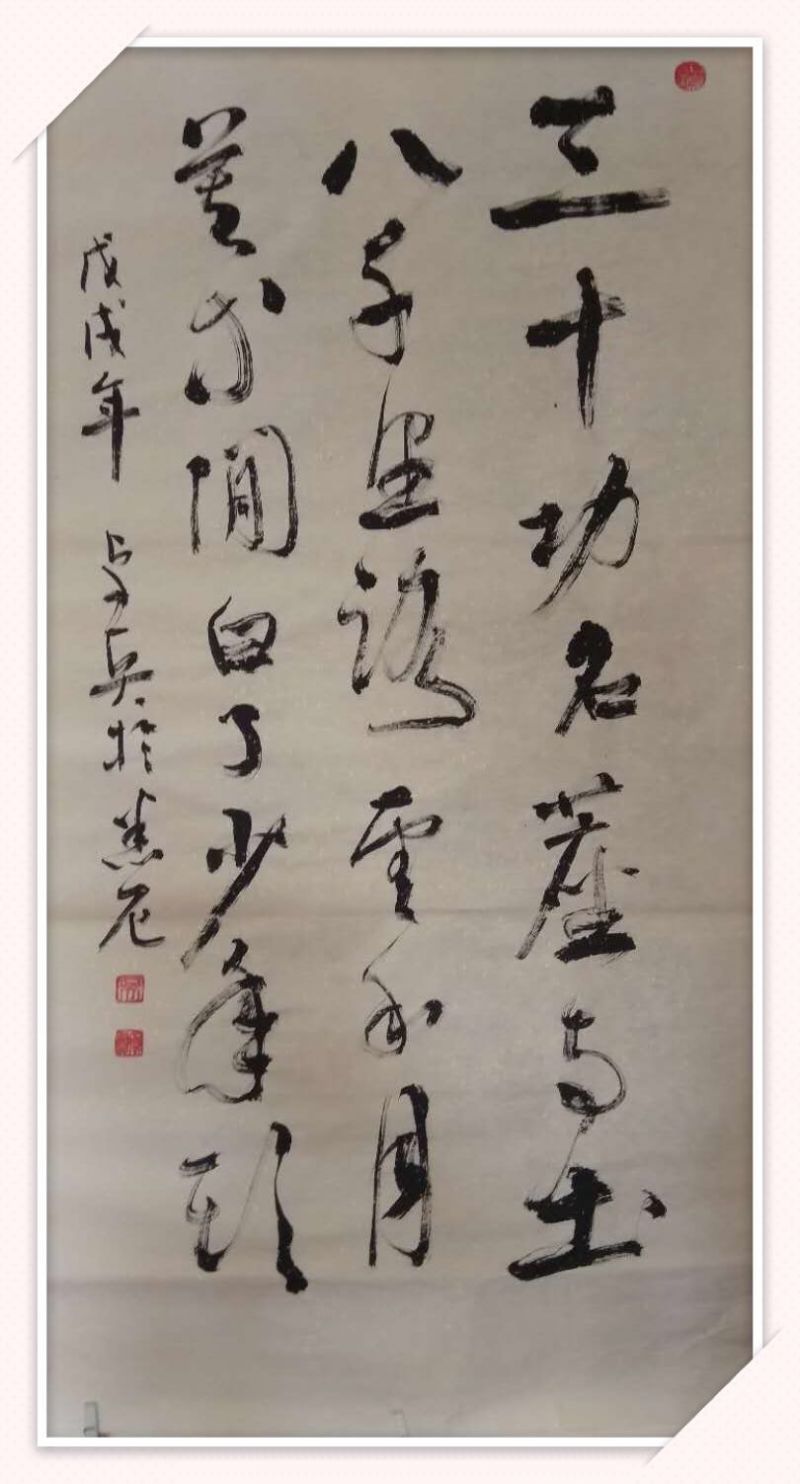 三十功名塵与土
八千里路雲和月
莫等閒白了少年頭
戊戌年 於悉尼